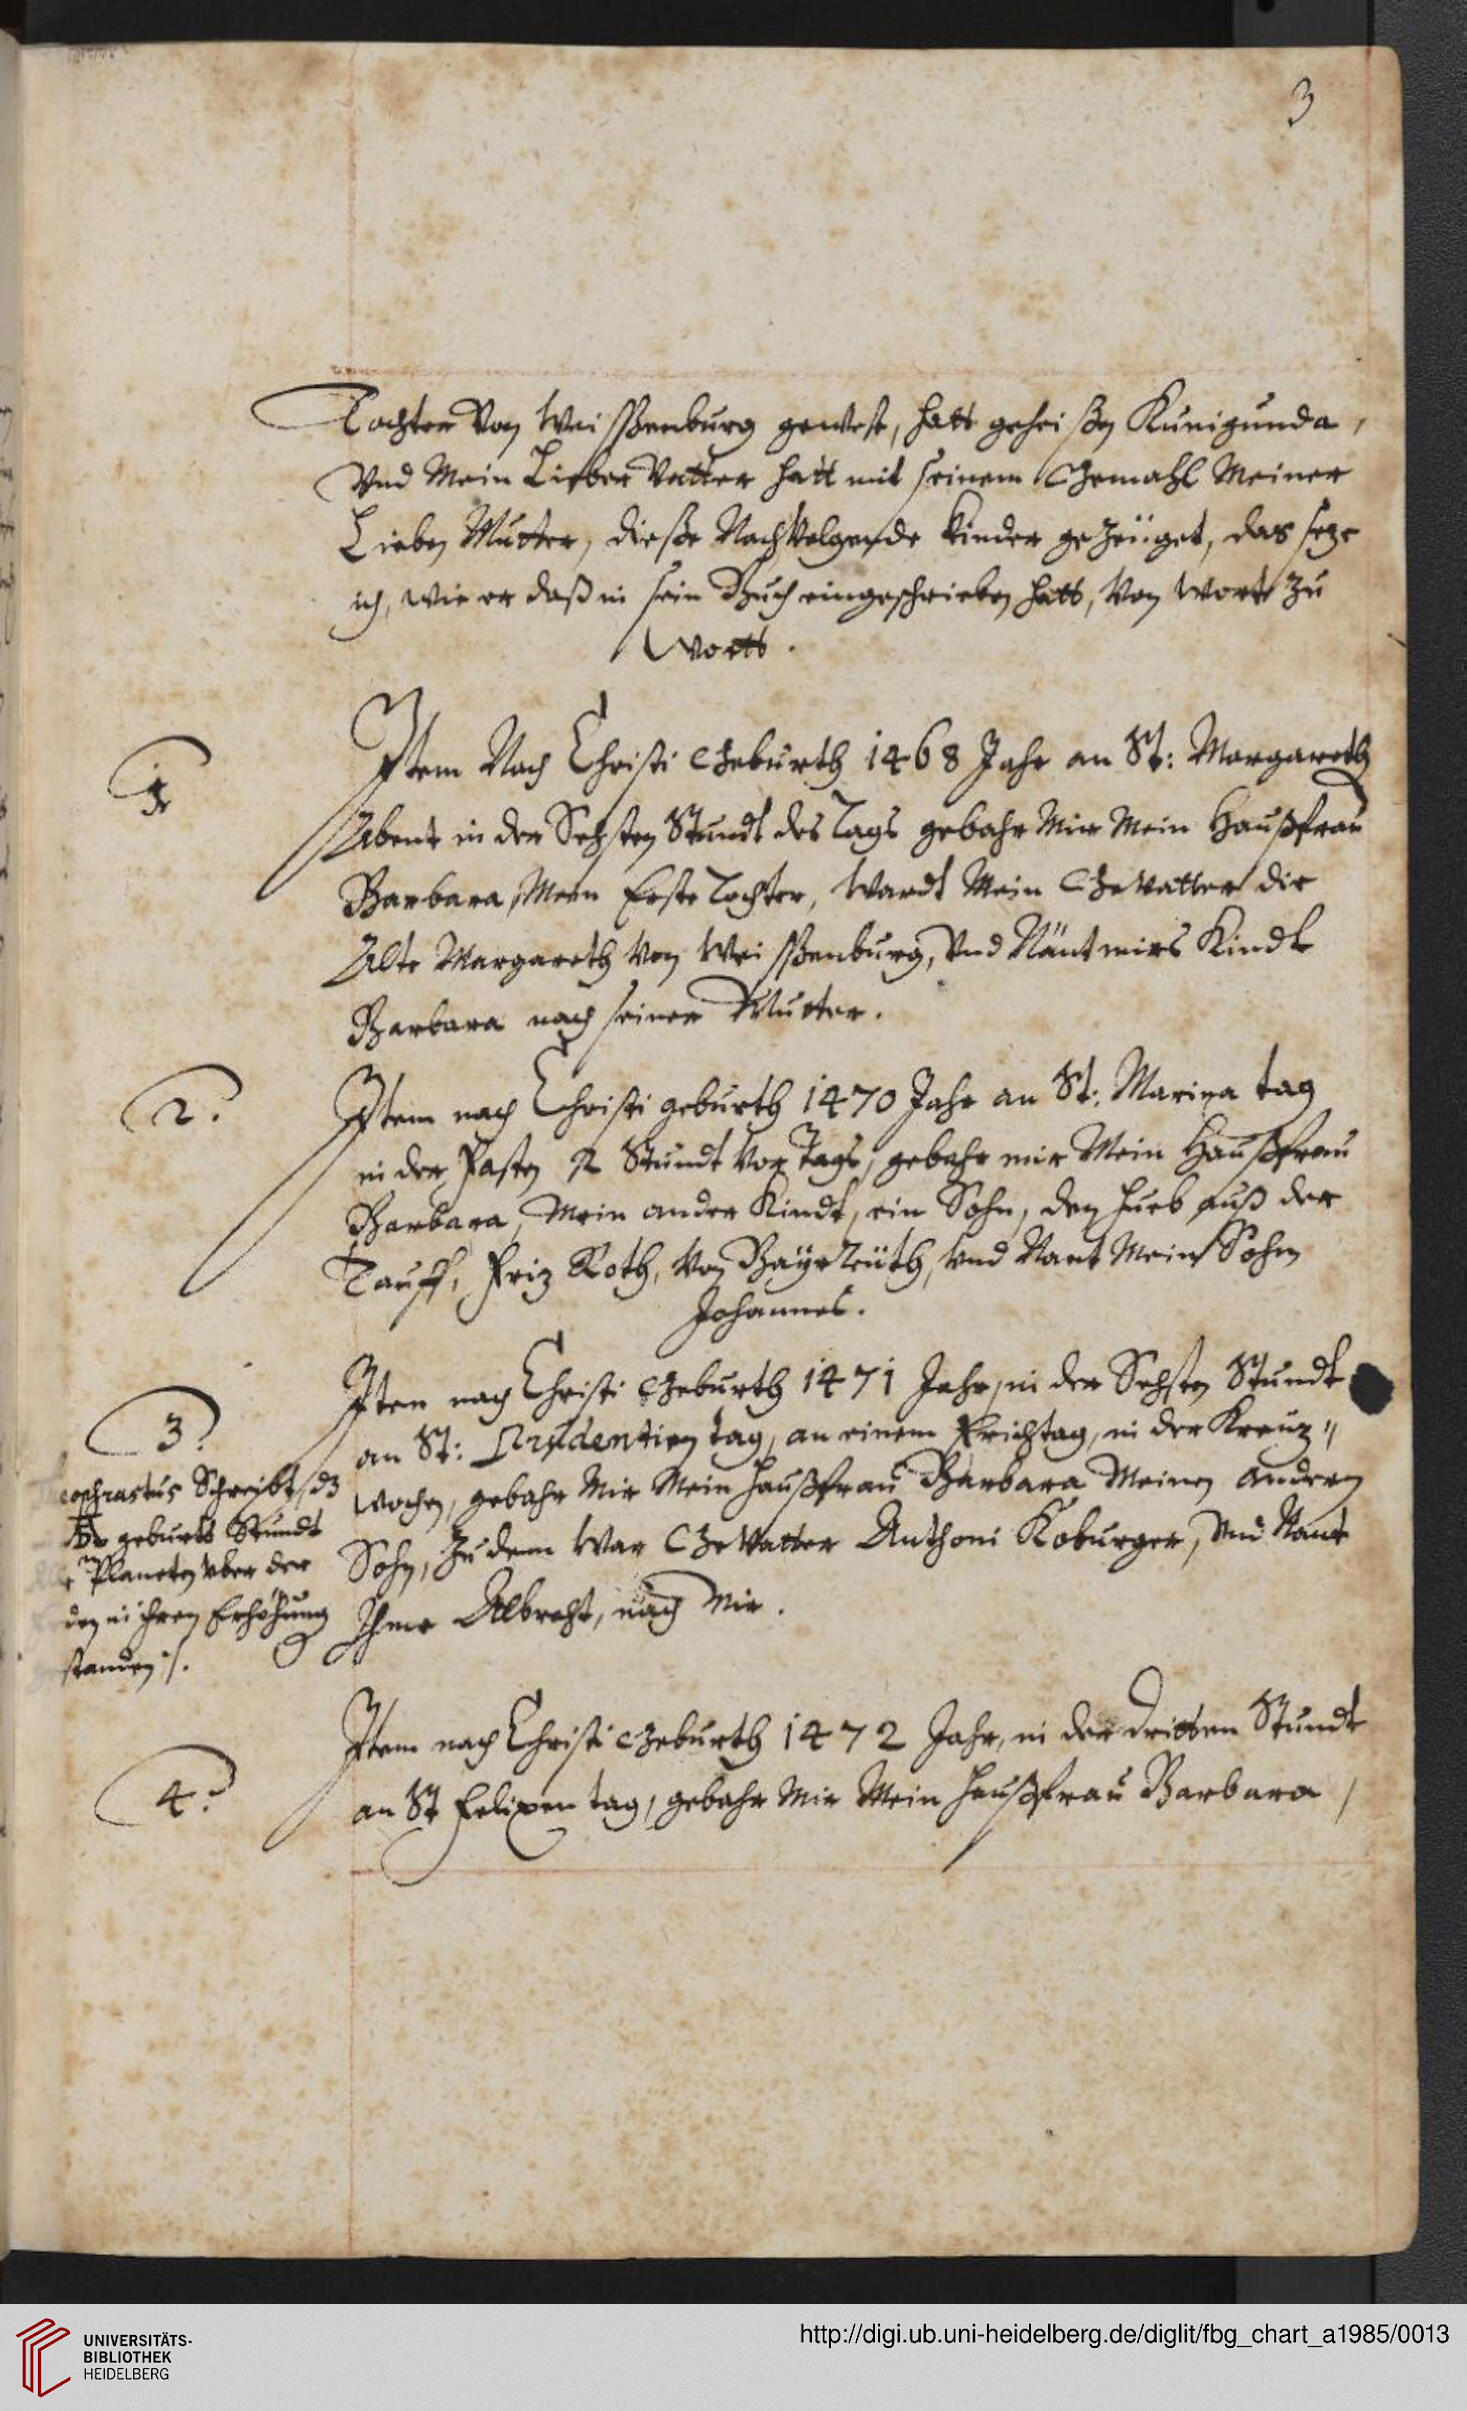 3
Tochter Von Weissenburg gewest, hatt geheißen Kunigunda,
Vnd Mein Lieber Vatter hatt mit seinem Gemahl Meiner
Lieben Mutter, dieße Nachvolgende kinder gezeüget, das seze
ich, wie er daß in sein Buch eingeschrieben hatt, Von Wortt zu
Wortt.
1
Item Nach Christi Geburth 1468 Jahr an St: Margareth
Abent in der Sechsten Stundt des Tags gebahr Mir Mein Haußfrau
Barbara, Mein Erste Tochter, Wardt Mein Gevatter die
Alte Margareth Von Weissenburg, Vnd Nänt mirs Kindt
Barbara nach seiner Mutter.
2.
Item nach Christi geburth 1470 Jahr an St: Marina tag
in der Fasten 2 Stundt Vor Tags, gebahr mir Mein Haußfrau
Barbara, Mein ander Kindt, ein Sohn, den hueb auß der
Tauff, Friz Roth, Von Bayrreüth, Vnd Nant Mein Sohn
Johannes.
3.
Item nach Christi Geburth 1471 Jahr, in der Sechsten Stundt
an St: Prudentien tag, an einem Erichtag, in der Kreuz"
wochen, gebahr Mir Mein Haußfrau Barbara Meinen andern
Sohn, Zu dem War Gevatter Anthoni Koburger, Vnd Nant
Ihme Albrecht, nach Mir.
eophrastus Schreibt, dz
geburts Stundt
Planeten vber der
den in ihren Erhöhung
standen /.
4.
Item nach Christi Geburth 1472 Jahr, in der dritten Stundt
an St Felixen tag, gebahr Mir Mein Haußfrau Barbara,
UNIVERSITÄTS-
BIBLIOTHEK
HEIDELBERG
http://digi.ub.uni-heidelberg.de/diglit/fbg_chart_a1985/0013